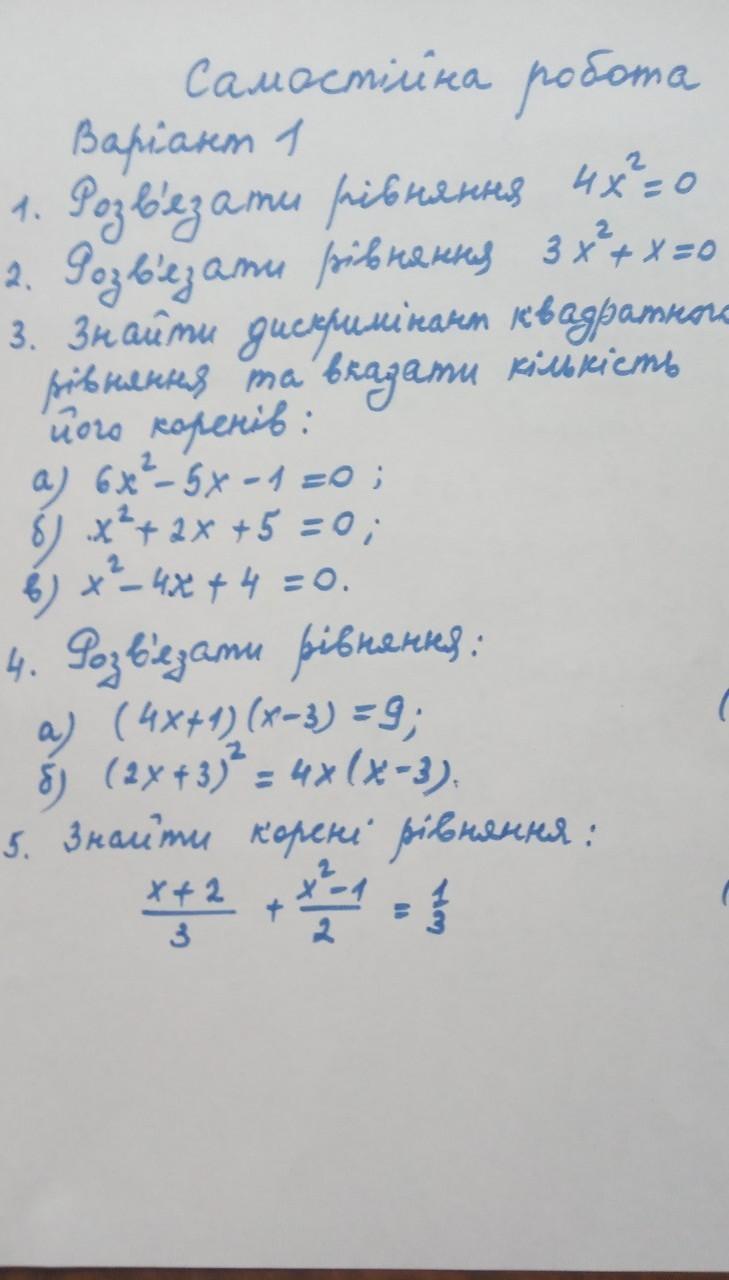 Самостійна робота
Варіант 1
1. Розв'язати рівняння 4x² = 0
2. Розв'язати рівняння 3x² + x = 0
3. Знайти дискримінант квадратного
рівняння та вказати кількість
його коренів:
а) 6x² - 5x - 1 = 0;
б) x² + 2x + 5 = 0;
в) x² - 4x + 4 = 0.
4. Розв'язати рівняння:
а) (4x+1)(x-3) = 9;
б) (2x+3)² = 4x(x-3).
5. Знайти корені рівняння:
(x+2)/3 + (x²-1)/2 = 1/3